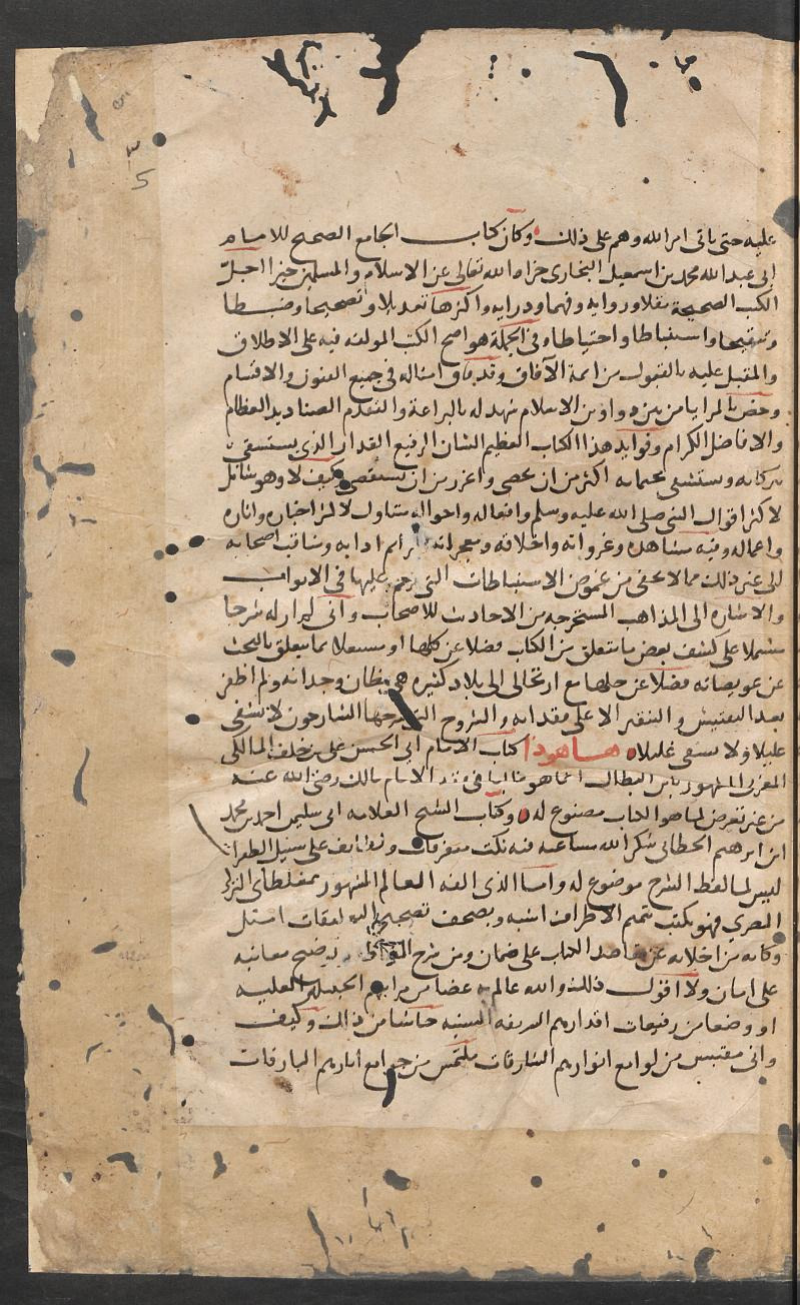 عليه حتى ياتى امر الله وهم على ذلك وكان كتاب الجامع الصحيح للامام
ابى عبد الله محمد بن اسمعيل البخارى جزاه الله تعالى عن الاسلام والمسلمين خيرا اجل
الكتب الصحيحة نقلا ورواية وفهما ودراية واكثرها تعديلا وتصحيحا وضبطا
وتنقيحا واستنباطا واحتياطا وفى الجملة هو اصح الكتب المولفه فيه على الاطلاق
والمقبل عليه بالقبول من ائمة الآفاق وقد فاق امثاله فى جميع الفنون والاقسام
وخص بالمزايا من بين دواوين الاسلام شهد له بالبراعة والتقدم الصناديد العظام
والافاضل الكرام وفوايد هذا الكتاب العظيم الشان الرفيع القدار الذى يستسقى
ببركاته ويستشفى بختماته اكثر من ان يحصى واغزر من ان تستقصى وكيف لا وهو شامل
لاكثر اقوال النبى صلى الله عليه وسلم وافعاله واحواله متناول لاكثر اخباره واثاره
واعماله وفيه مشاهده وغزواته واخلاقه ومعجزاته ادابه ومناقب اصحابه
الى غير ذلك مما لا يخفى من غموض الاستنباطات التى ترجم عليها فى الابواب
والاشارة الى المذاهب المستخرجه من الاحاديث للاصحاب وانى لم ار له شرحا
مشتملا على كشف بعض ما يتعلق من الكتاب فضلا عن كلها او مستقلا بما يتعلق بالبحث
عن عويصاته فضلا عن حلها مع ارتحالى الى بلاد كثيره هى مظان وجدانه ولم اظفر
بعد التفتيش والتنقير الا على فقدانه والشروح التى شرحها الشارحون لا تشفى
عليلا ولا تسقى غليلا ها هو ذا كتاب الامام ابى الحسن على بن خلف المالكى
المغربى المشهور بابن البطال انما هو غالبا فى الامام مالك رضى الله عنه
من غير تعرض لما هو الكتاب مصنوع له وكتاب الشيخ العلامه ابى سليمن احمد بن محمد
ابن ابرهيم الخطابى شكر الله مساعيه فيه نكت متفرقات ولطايف على سبيل الطفرات
ليس لما لفظ الشرح موضوع له واما الذى الفه العالم المشهور بمغلطاى التركى
المصرى فهو بكتب تتميم الاطراف اشبه وبصحف تصحيح التعليقات امثل
وكانه من اخلايه عن مقاصد الكتاب على ضمان ومن شرح وتوضيح معانيه
على امان ولا اقول ذلك والله عالم به غضا من مراتبهم الجليله العليه
او وضعا من رفيعات اقدارهم الشريفه السنيه حاشا من ذلك وكيف
وانى مقتبس من لوامع انوارهم الشارقات ملتمس من جوامع اثارهم البارقات